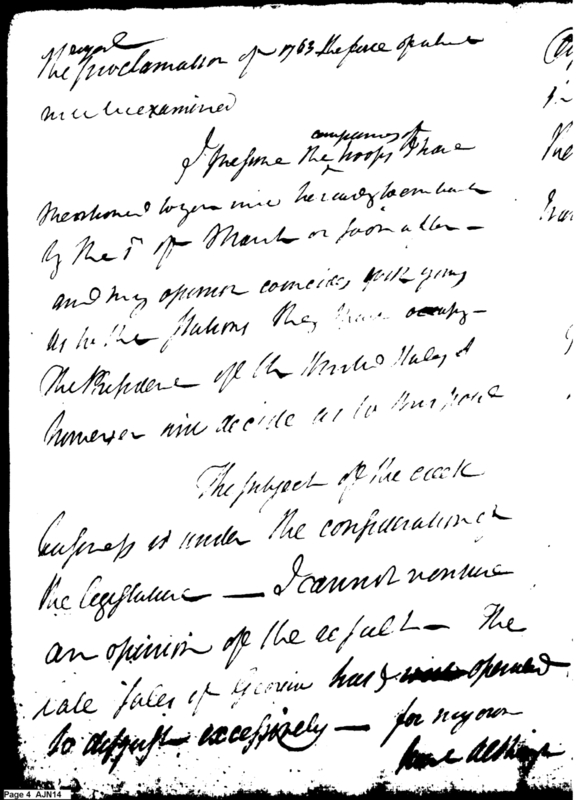 royal
The Proclamation of 1763 the force of which
will be examined
companies of
I presume the troops I have
mentioned to you will be ready to embark
by the 1st of March or soon after —
and my opinion coincides with yours
as to the stations they should occupy —
The President of the United States
however will decide as to this point
The subject of the creek
business is under the consideration of
the legislature — I cannot venture
an opinion of the result — The
late sales of Georgia have operated
to disgust excessively — for my own
Page 4 AJN14